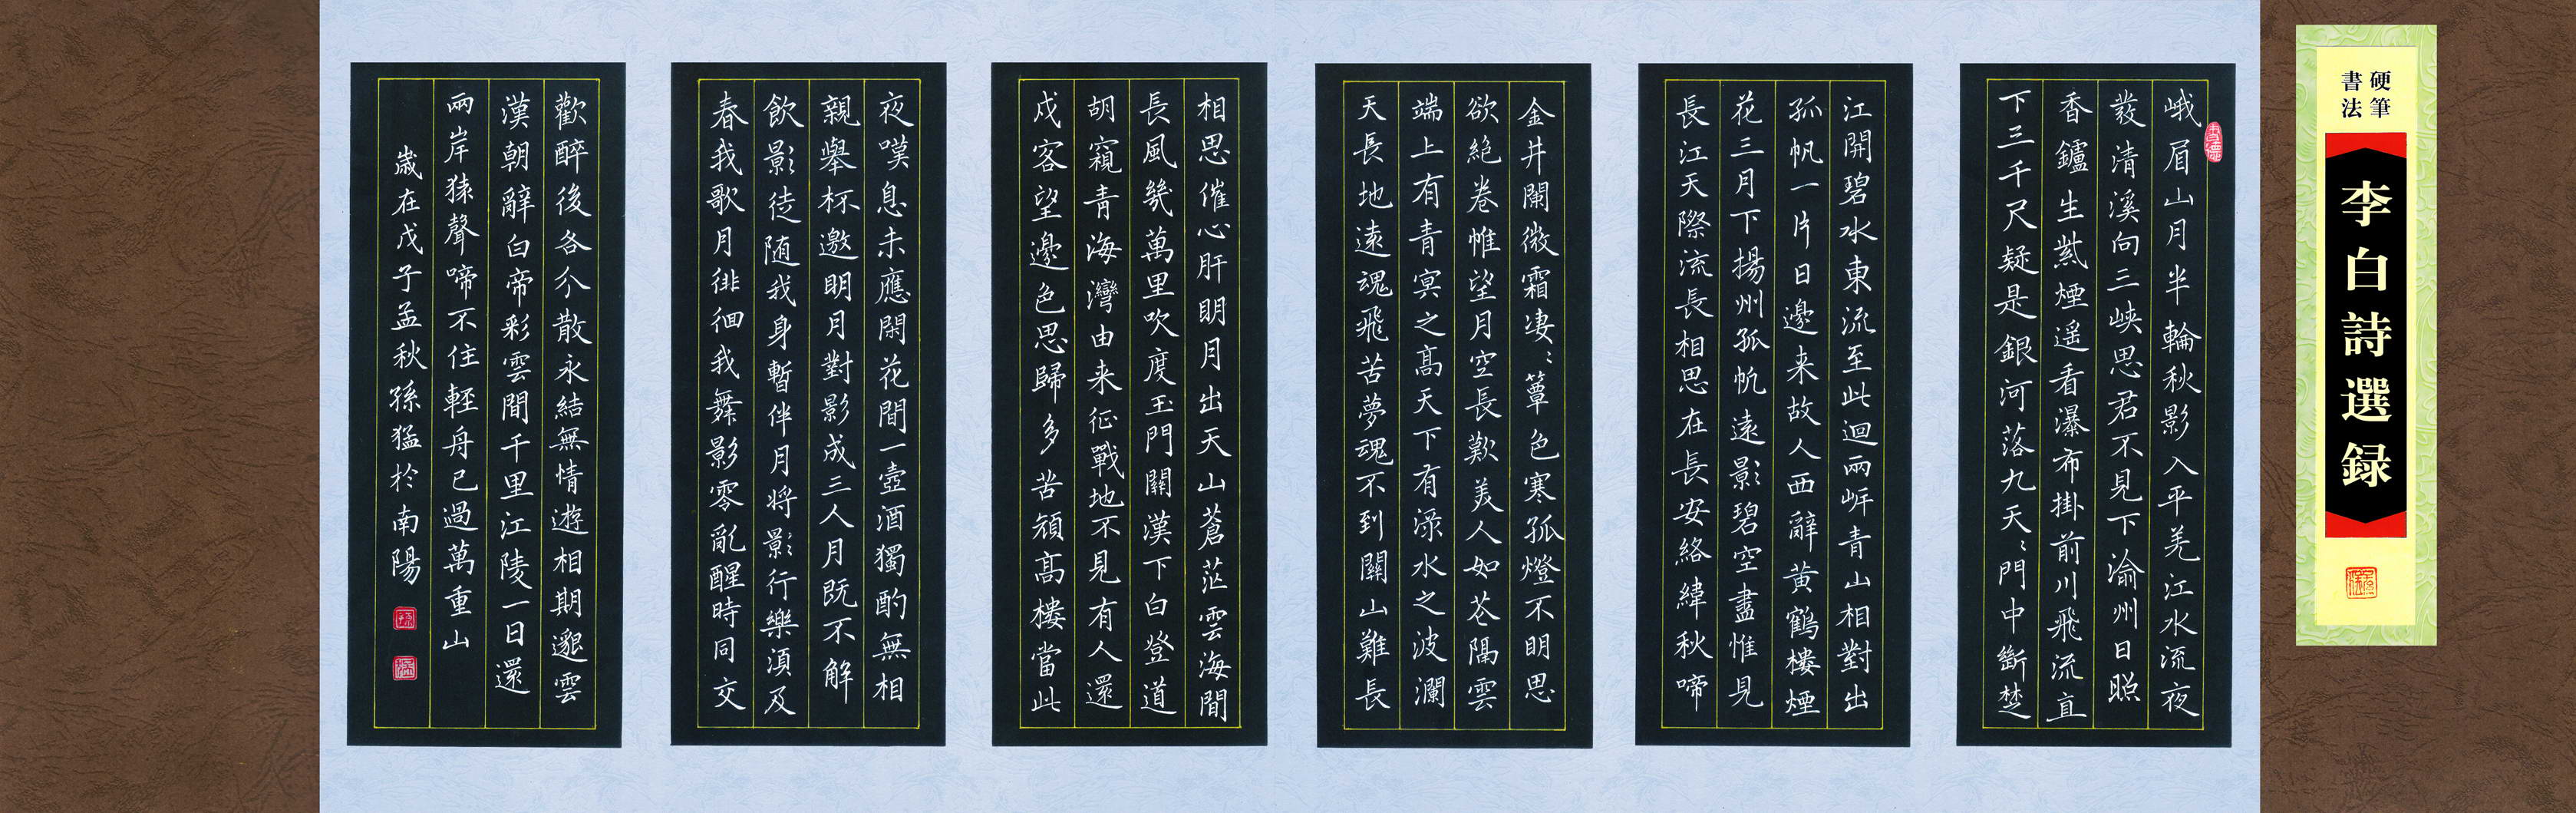 硬筆
書法
李白詩選録
峨眉山月半輪秋影入平羌江水流夜
發清溪向三峽思君不見下渝州日照
香鑪生紫煙遥看瀑布掛前川飛流直
下三千尺疑是銀河落九天〻門中斷楚
江開碧水東流至此迴兩岸青山相對出
孤帆一片日邊来故人西辭黄鶴樓煙
花三月下揚州孤帆遠影碧空盡惟見
長江天際流長相思在長安絡緯秋啼
金井闌微霜凄〻簟色寒孤燈不明思
欲絶卷帷望月空長歎美人如花隔雲
端上有青冥之髙天下有渌水之波瀾
天長地遠魂飛苦夢魂不到關山難長
相思催心肝明月出天山蒼茫雲海間
長風幾萬里吹度玉門關漢下白登道
胡窺青海灣由来征戰地不見有人還
戍客望邊色思歸多苦顔髙樓當此
夜嘆息未應閑花間一壺酒獨酌無相
親舉杯邀明月對影成三人月既不解
飲影徒随我身暫伴月将影行樂須及
春我歌月徘徊我舞影零亂醒時同交
歡醉後各分散永結無情遊相期邈雲
漢朝辭白帝彩雲間千里江陵一日還
兩岸猿聲啼不住輕舟已過萬重山
歲在戊子孟秋孫猛於南陽